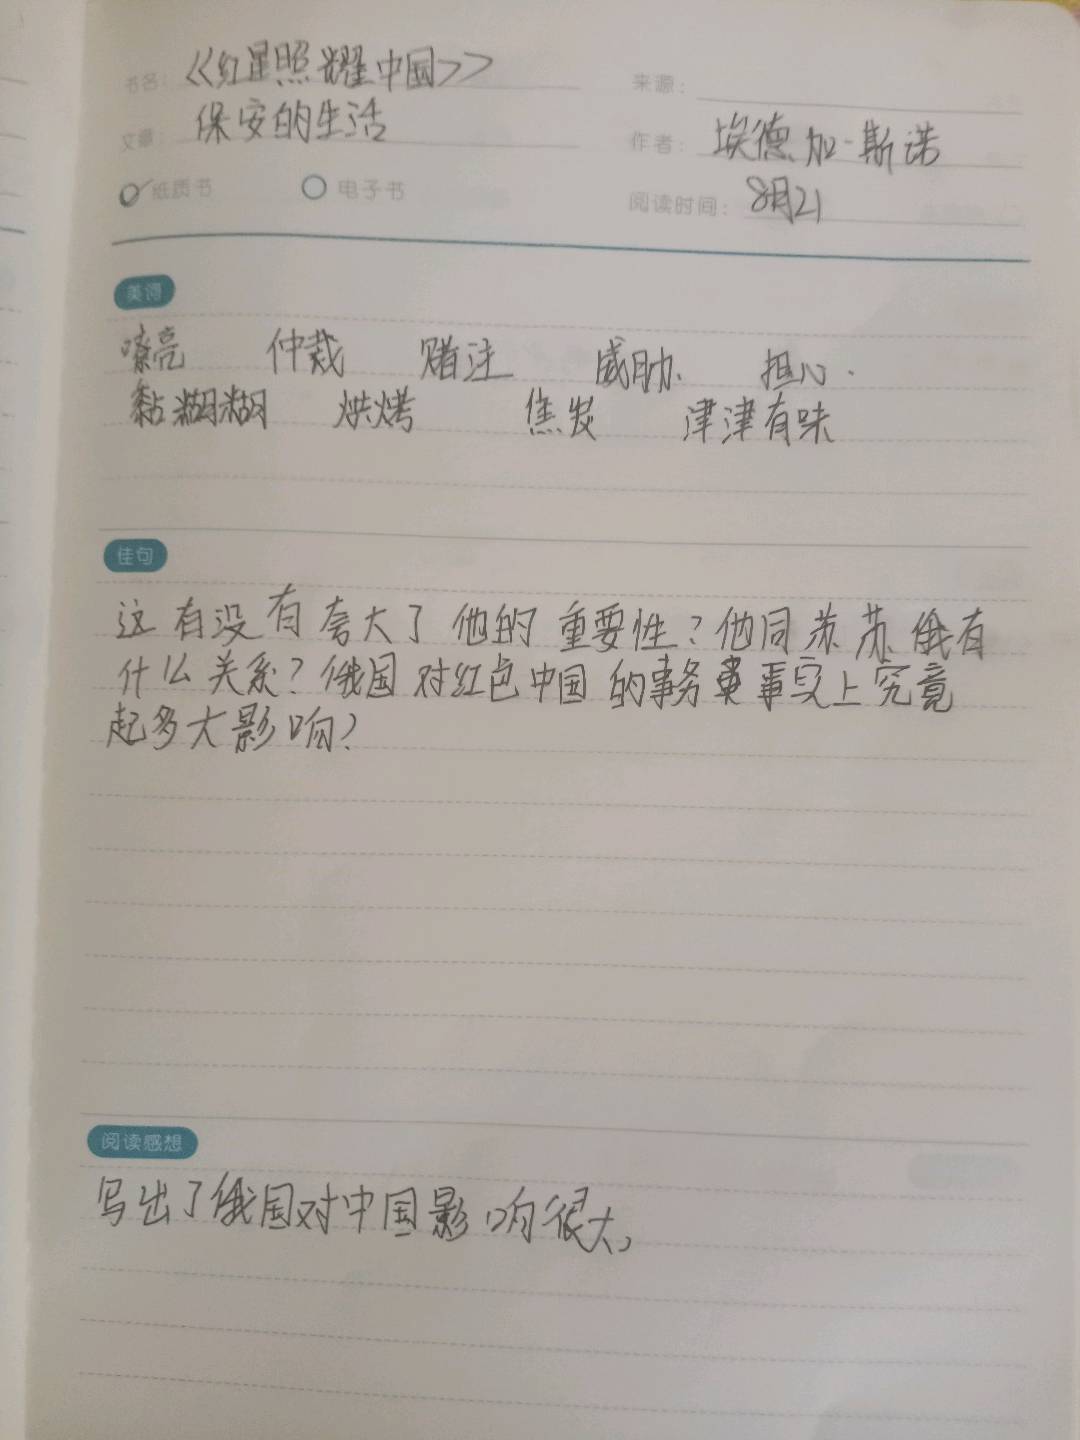 书名: 《红星照耀中国》
来源:
文章: 保安的生活
作者: 埃德加·斯诺
纸质书 电子书
阅读时间: 8月21
美词
嘹亮 仲裁 赌注 威胁 担心.
黏糊糊 烘烤 焦炭 津津有味
佳句
这有没有夸大了他的重要性?他同苏苏俄有
什么关系?俄国对红色中国的事务事实上究竟
起多大影响?
阅读感想
写出了俄国对中国影响很大,